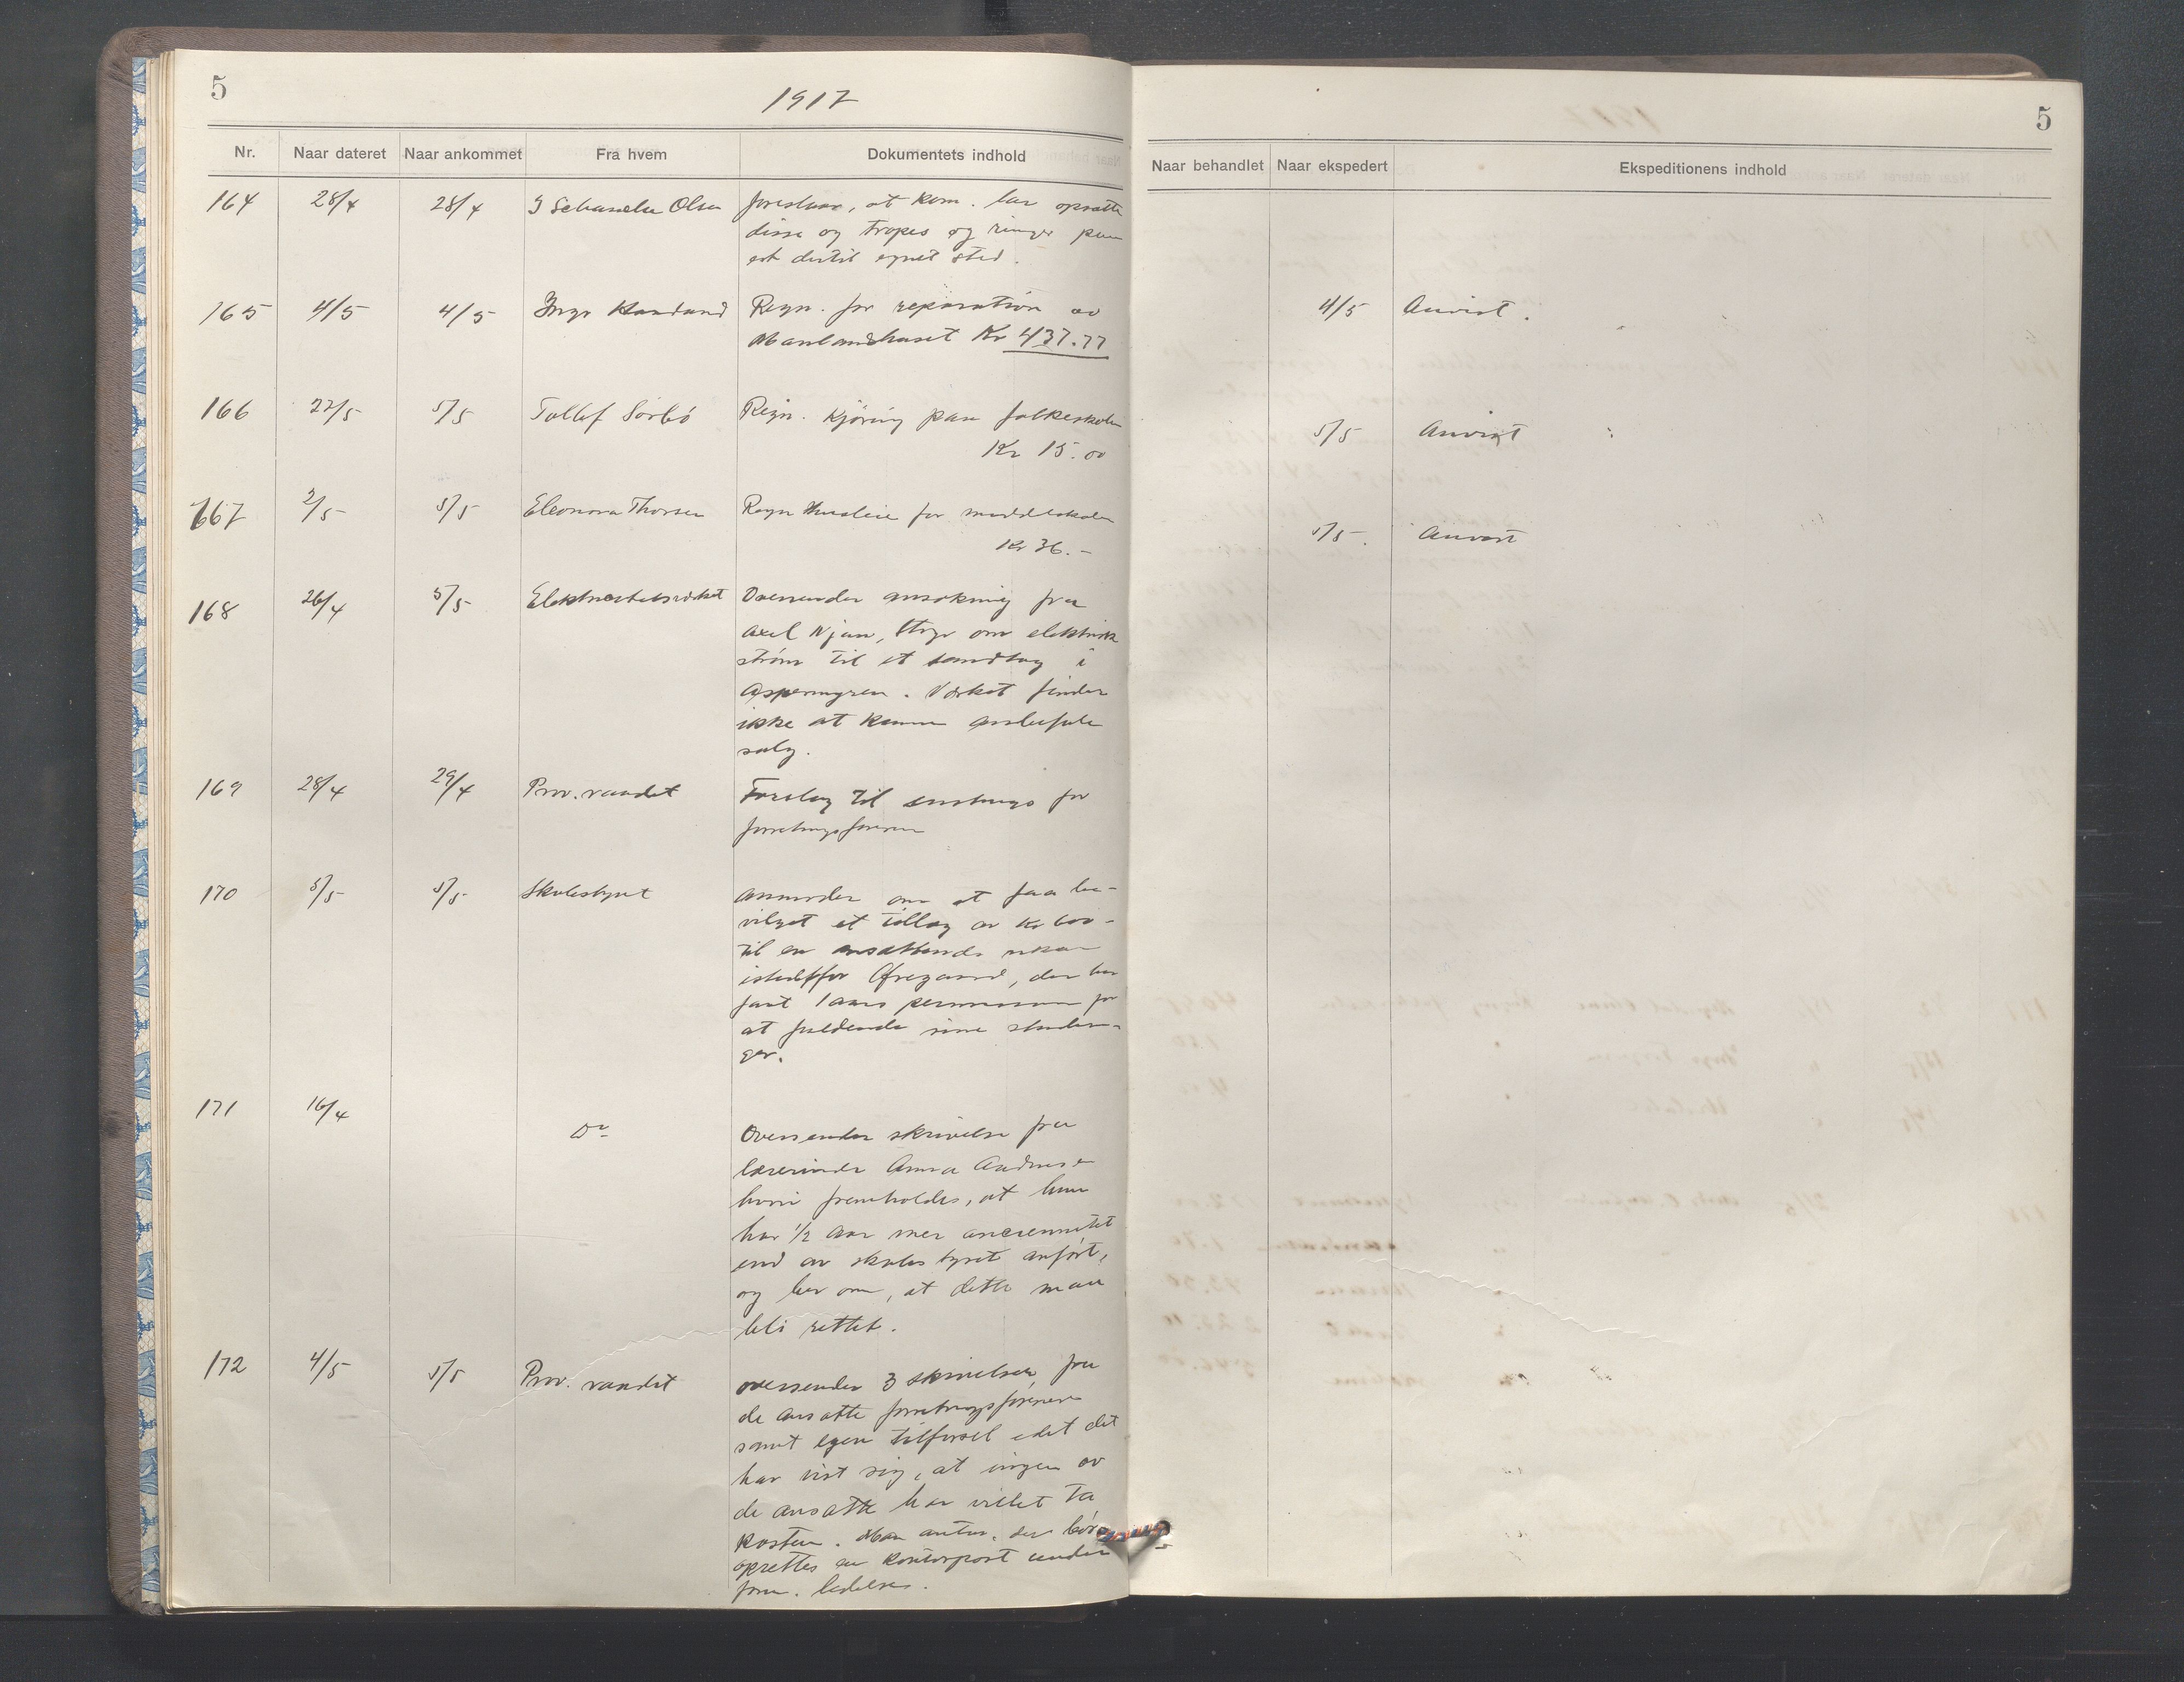 5
1917
Nr. Naar dateret Naar ankommet Fra hvem Dokumentets indhold
164 28/4 28/4 J Schancke Olsen foreslaar, at kom. lar opsætte
disse og tropes og ringe paa
et dertil egnet sted.
165 4/5 4/5 Inge Haaland Regn. for reparation av
Kr 437.77
166 22/5 5/5 Tollef Sørbö Regn. kjöring paa folkeskolen
Kr 15.00
167 2/5 5/5 Eleonora Thorsen Regn Husleie for middelskolen
Kr 36.-
168 26/4 5/5 Elektricitetsverket Oversender ansökning fra
Axel Njaa, om elektrisk
ström til et sandtag i
Aspemyren. Verket finder
ikke at kunne anbefale
salg.
169 28/4 29/4 Prov. raadet Forslag til instruks for
forretningsföreren
170 5/5 5/5 Skolestyret Anmoder om at faa be-
vilget et tillæg av kr 600-
til en ansættende vikar
istedetfor, der har
faat 1 aars permission for
at fuldende sine studerin-
ger.
171 16/4 Do Oversender skrivelse fra
lærerinde Anna Andersen
hvori fremholdes, at hun
har 1/2 aar mer anciennitet
end av skolestyret anfört,
og ber om, at dette maa
bli rettet.
172 4/5 5/5 Prov. raadet oversender 3 skrivelser fra
de ansatte forretningsförere
samt egen tilförsel idet det
har vist sig, at ingen av
de ansatte har villet ta
posten. Man antar, der bör
oprettes en kontorpost under
form. ledelse.
5
Naar behandlet Naar ekspedert Ekspeditionens indhold
4/5 Anvist.
5/5 Anvist
5/5. Anvist